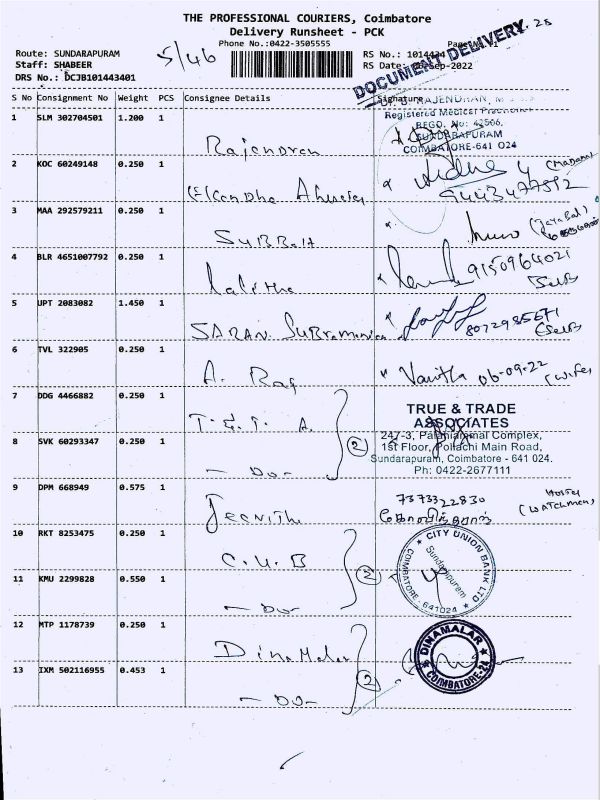 THE PROFESSIONAL COURIERS, Coimbatore
Delivery Runsheet - PCK
Phone No.:0422-3505555
Route: SUNDARAPURAM
Staff: SHABEER
DRS No.: DCJB101443401
5/46
RS No.: 1014434
RS Date: Sep-2022
DOCUMENT DELIVERY. 28
S No Consignment No Weight PCS Consignee Details Signature
1 SLM 302704501 1.200 1 Rajendren
RAJENDRAN
Registered Medical Practitioner
REGD. No: 42566,
SUNDARAPURAM
COIMBATORE-641 024
2 KOC 60249148 0.250 1
9443477592
3 MAA 292579211 0.250 1
4 BLR 4651007792 0.250 1 Lalitha 9150964021
5 UPT 2083082 1.450 1 SARAN Subramania 8072985671
6 TVL 322905 0.250 1 A. Raj Vanitha 06-09-22 (wife)
7 DDG 4466882 0.250 1 T. & T. A.
TRUE & TRADE
ASSOCIATES
247-3, Palaniammal Complex,
1st Floor, Pollachi Main Road,
Sundarapuram, Coimbatore - 641 024.
Ph: 0422-2677111
8 SVK 60293347 0.250 1 - Do - 2
9 DPM 668949 0.575 1 Jeevitha 7373322830 Hostel (WATCHMEN)
10 RKT 8253475 0.250 1 C.U.B
CITY UNION BANK LTD
Sundarapuram
COIMBATORE - 641024
11 KMU 2299828 0.550 1 - Do - 2
12 MTP 1178739 0.250 1 Dinamalar
DINAMALAR
COIMBATORE-24
13 IXM 502116955 0.453 1 - Do - 2